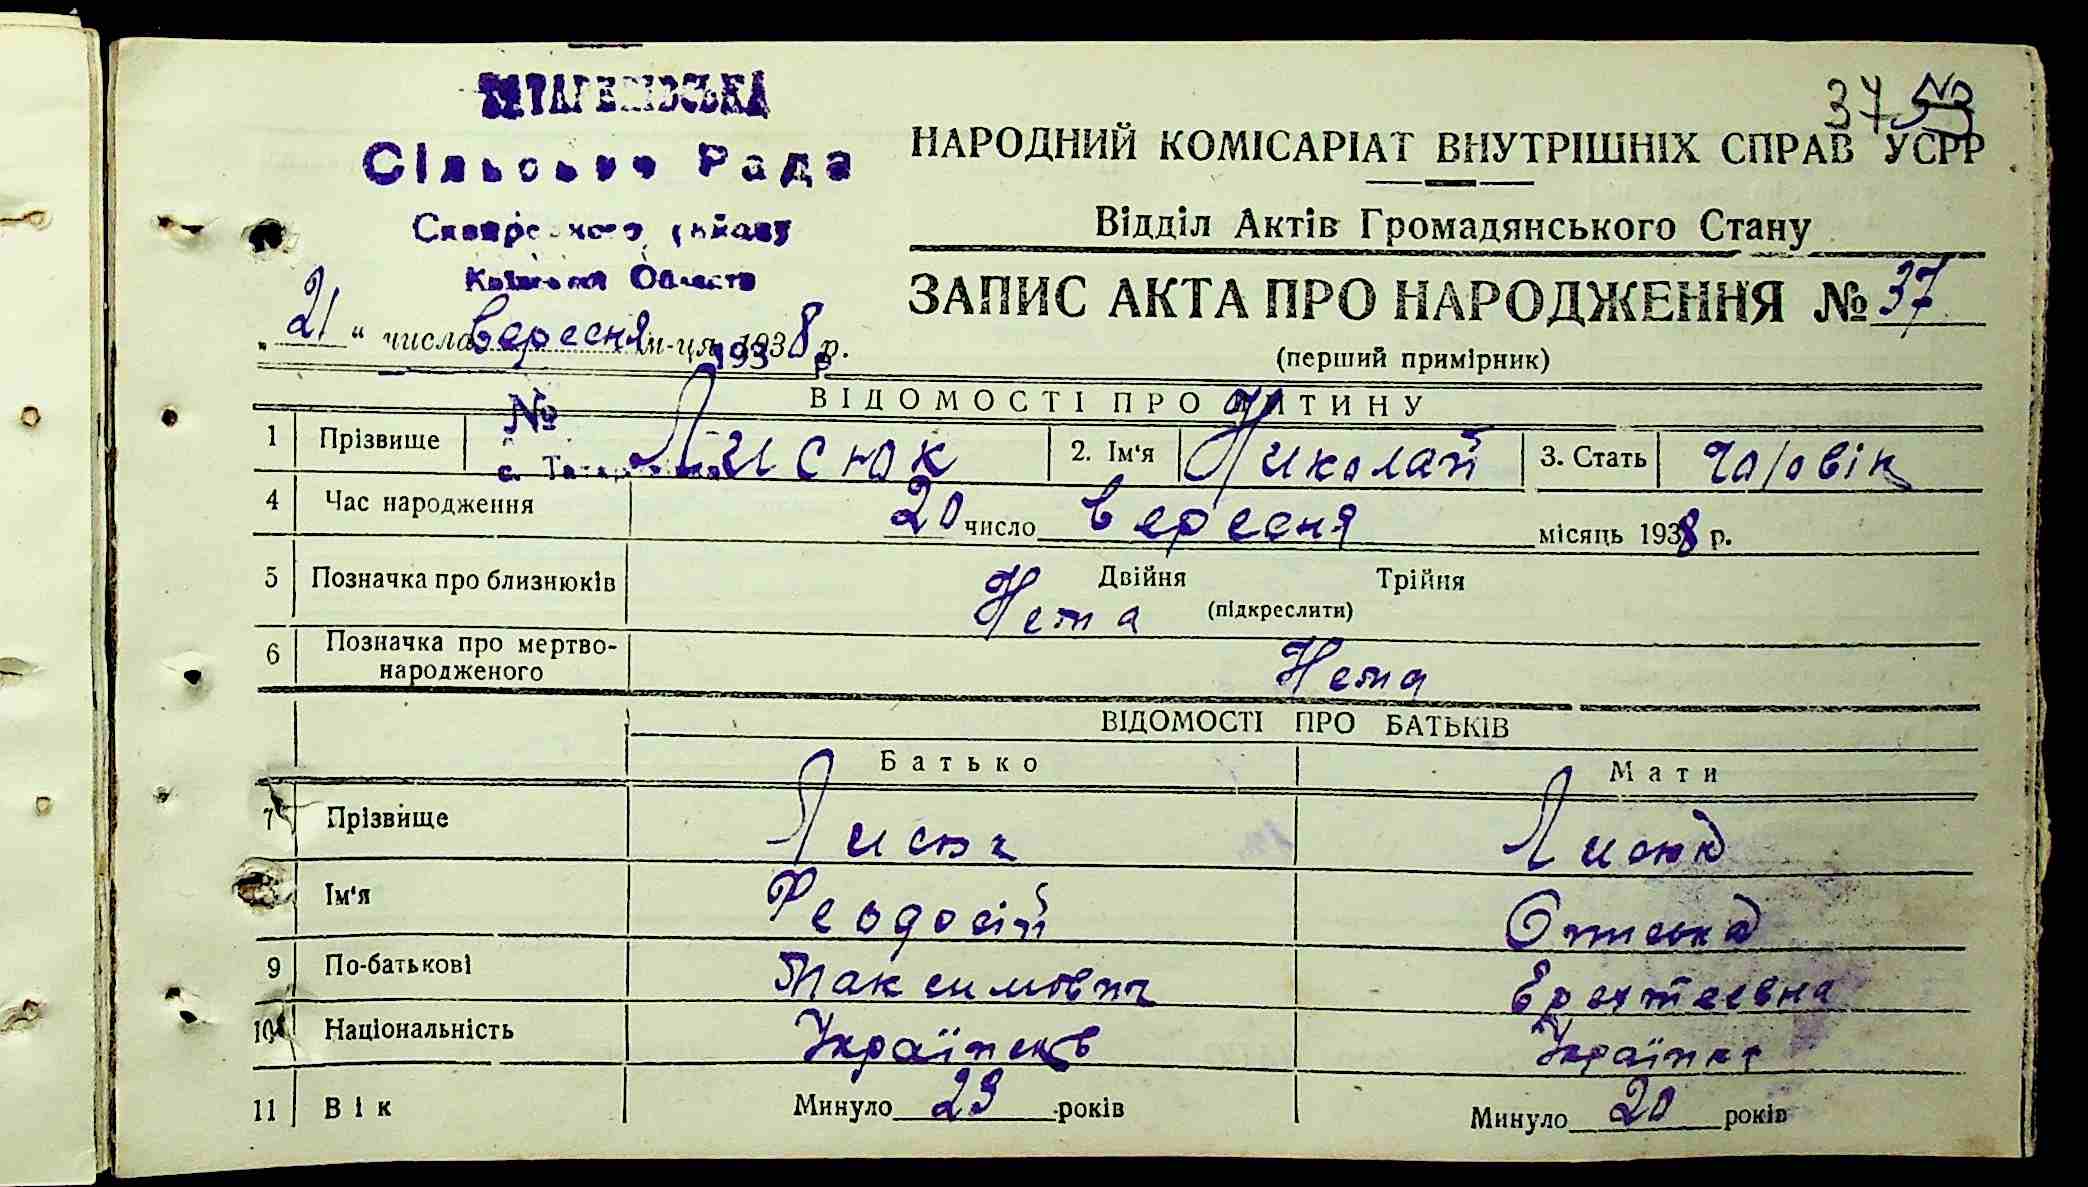 ТАТАРИНІВСЬКА
Сільська Рада
Сквирського району
Київської Області
37
НАРОДНИЙ КОМІСАРІАТ ВНУТРІШНІХ СПРАВ УСРР
Відділ Актів Громадянського Стану
ЗАПИС АКТА ПРО НАРОДЖЕННЯ № 37
(перший примірник)
„ 21 “ числа вересня м-ця 1938 р.
193 р
ВІДОМОСТІ ПРО ДИТИНУ
№
1 Прізвище Лисюк 2. Ім'я Николай 3. Стать чоловік
4 Час народження 20 число вересня місяць 1938 р.
5 Позначка про близнюків Нема Двійня Трійня
(підкреслити)
6 Позначка про мертво-
народженого Нема
ВІДОМОСТІ ПРО БАТЬКІВ
Батько Мати
7 Прізвище Лисюк Лисюк
Ім'я Феодосій
9 По-батькові Максимович
10 Національність Українець Українка
11 Вік Минуло 23 років Минуло 20 років